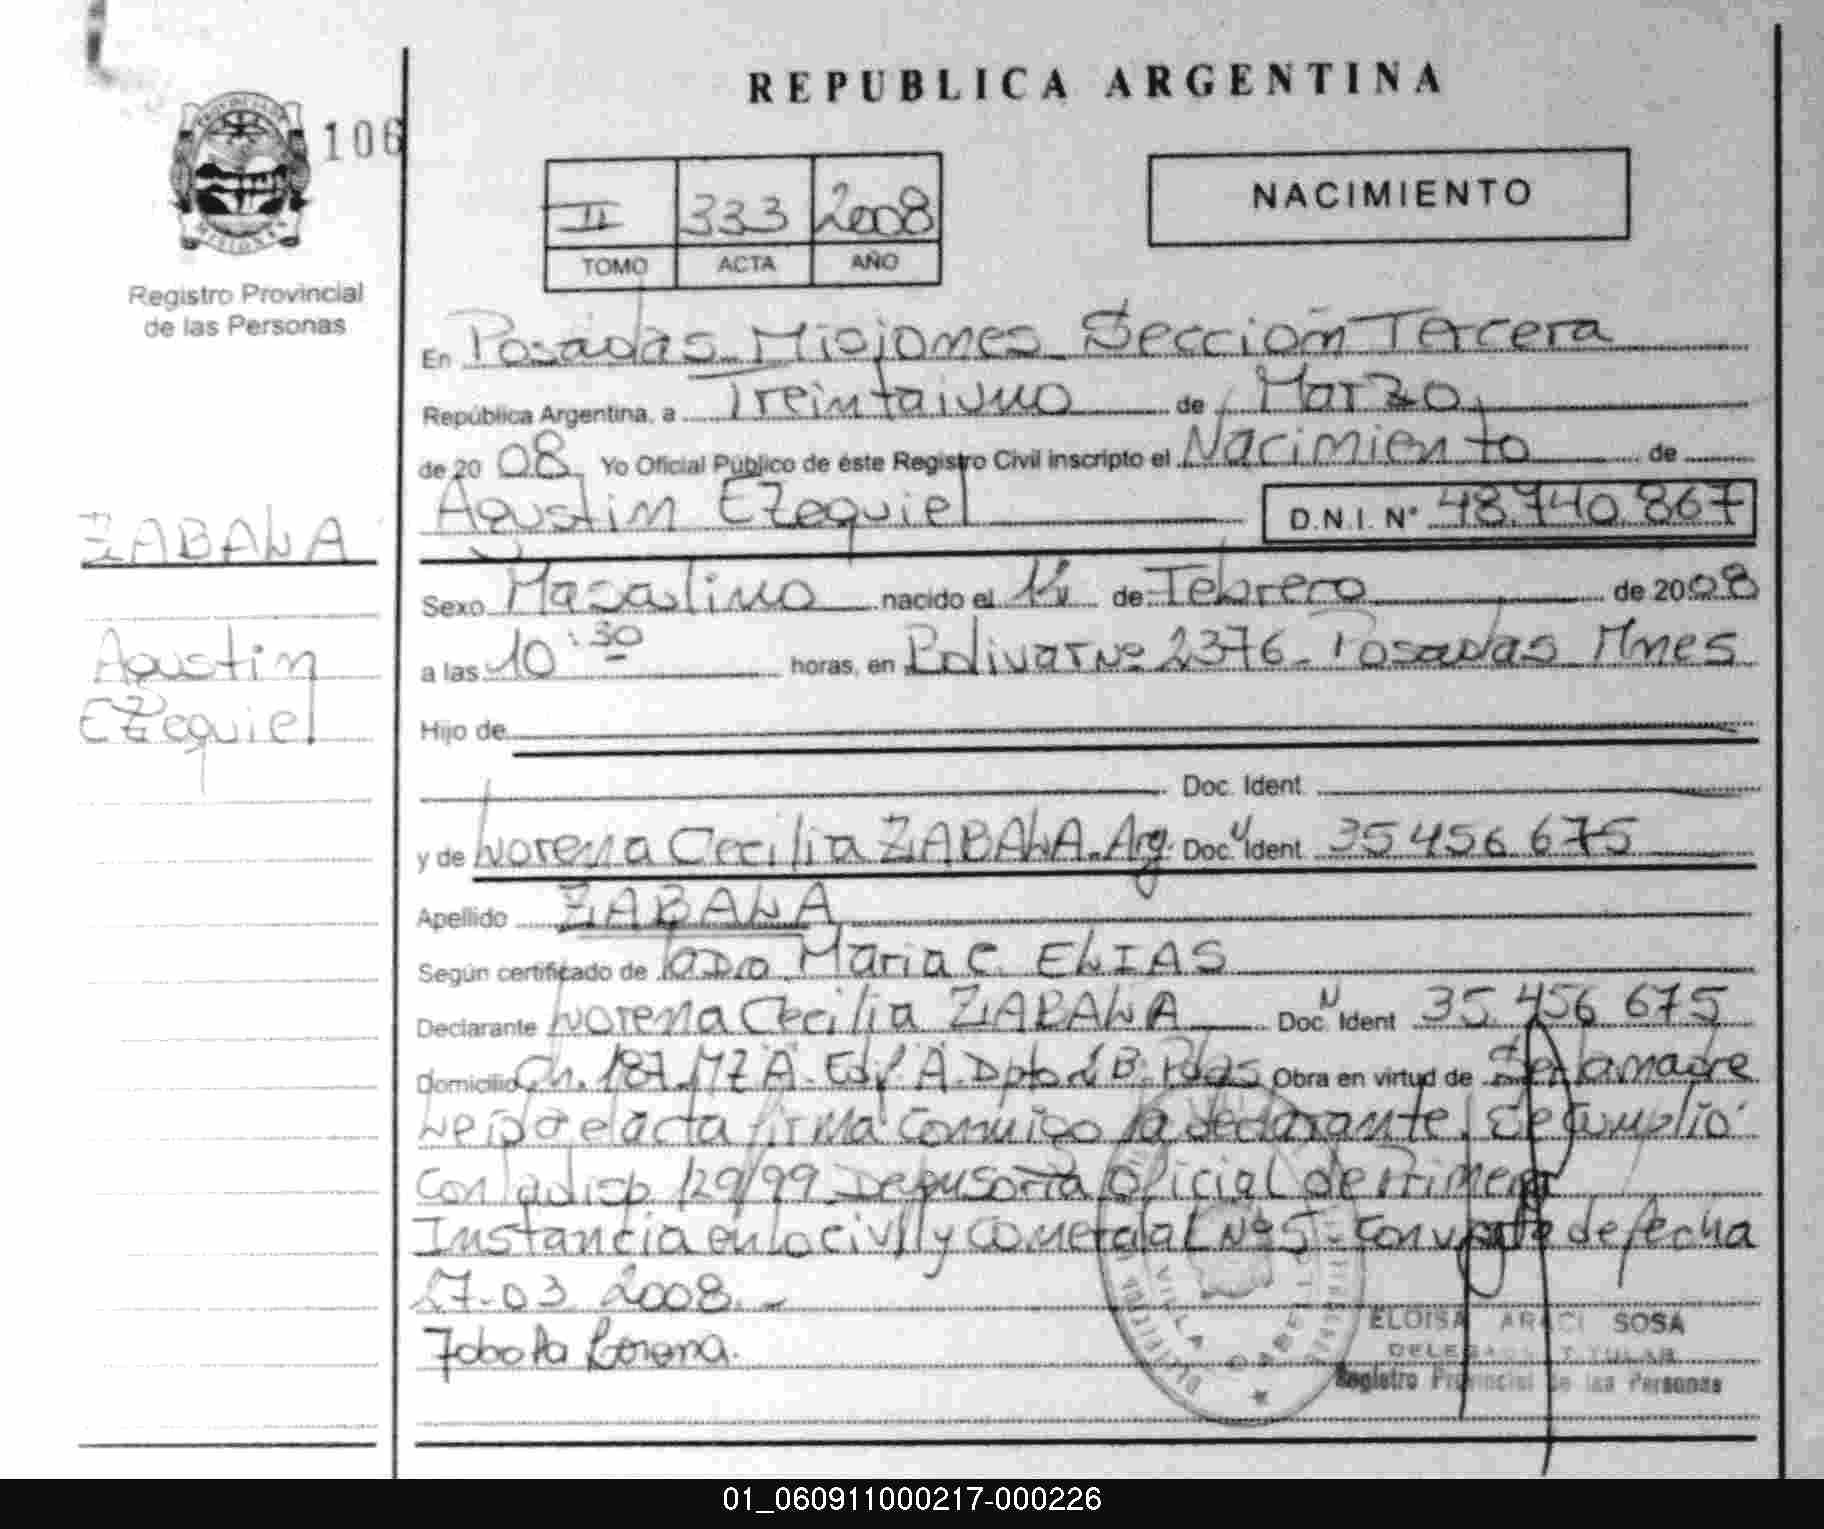 REPUBLICA ARGENTINA
106
NACIMIENTO
II 333 2008
TOMO ACTA AÑO
Registro Provincial
de las Personas
En Posadas Misiones Sección Tercera
República Argentina, a Treintaiuno de Marzo
de 20 08 Yo Oficial Público de éste Registro Civil inscripto el Nacimiento de
Agustin Ezequiel D.N.I. N° 48.740.867
ZABALA
Agustin
Ezequiel
Sexo Masculino nacido el de Febrero de 2008
a las 10:30 horas, en Bolivar Nº 2376 Posadas Mnes
Hijo de
Doc. Ident.
y de Lorena Cecilia ZABALA Arg. Doc. Ident. 35 456 675
Apellido ZABALA
Según certificado de Maria C. ELIAS
Declarante Lorena Cecilia ZABALA Doc. Ident. 35.456 675
Domicilio Ch. 187 MZ A. Edf A. Dpto B. Pdas Obra en virtud de la madre
Leida el acta firma conmigo la declarante. Se cumplio
con la disp 129/99 Defensoria Oficial de Primera
Instancia en lo civil y comercial Nº 5 de fecha
27-03 2008.
Zabala Lorena.
VILLA CABELLO
ELOISA ARACI SOSA
DELEGADA TITULAR
Registro Provincial de las Personas
01_060911000217-000226